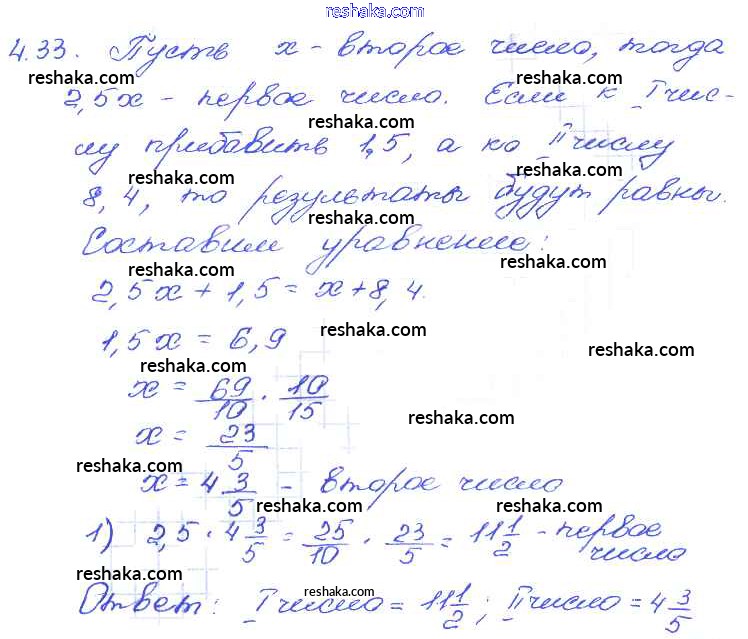 www.reshaka.com
4.33. Пусть x - второе число, тогда
reshaka.com reshaka.com reshaka.com
2,5x - первое число. Если к I чис-
reshaka.com
лу прибавить 1,5, а ко II числу
reshaka.com reshaka.com
8,4, то результаты будут равны.
reshaka.com
Составим уравнение:
reshaka.com reshaka.com
2,5x + 1,5 = x + 8,4.
reshaka.com
1,5x = 6,9
reshaka.com reshaka.com
x = 69/10 · 10/15
reshaka.com
x = 23/5
reshaka.com
x = 4 3/5 - второе число
reshaka.com reshaka.com
1) 2,5 · 4 3/5 = 25/10 · 23/5 = 11 1/2 - первое
число
reshaka.com reshaka.com
reshaka.com
Ответ: I число = 11 1/2; II число = 4 3/5